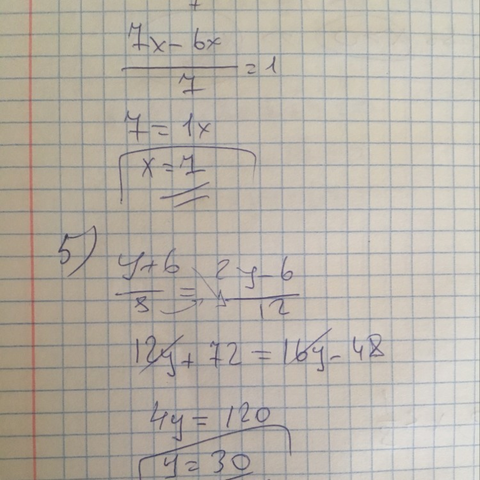 7x-6x
7 = 1
7 = 1x
x = 7
5)
y+6 / 8 = 2y-6 / 12
12y + 72 = 16y - 48
4y = 120
y = 30